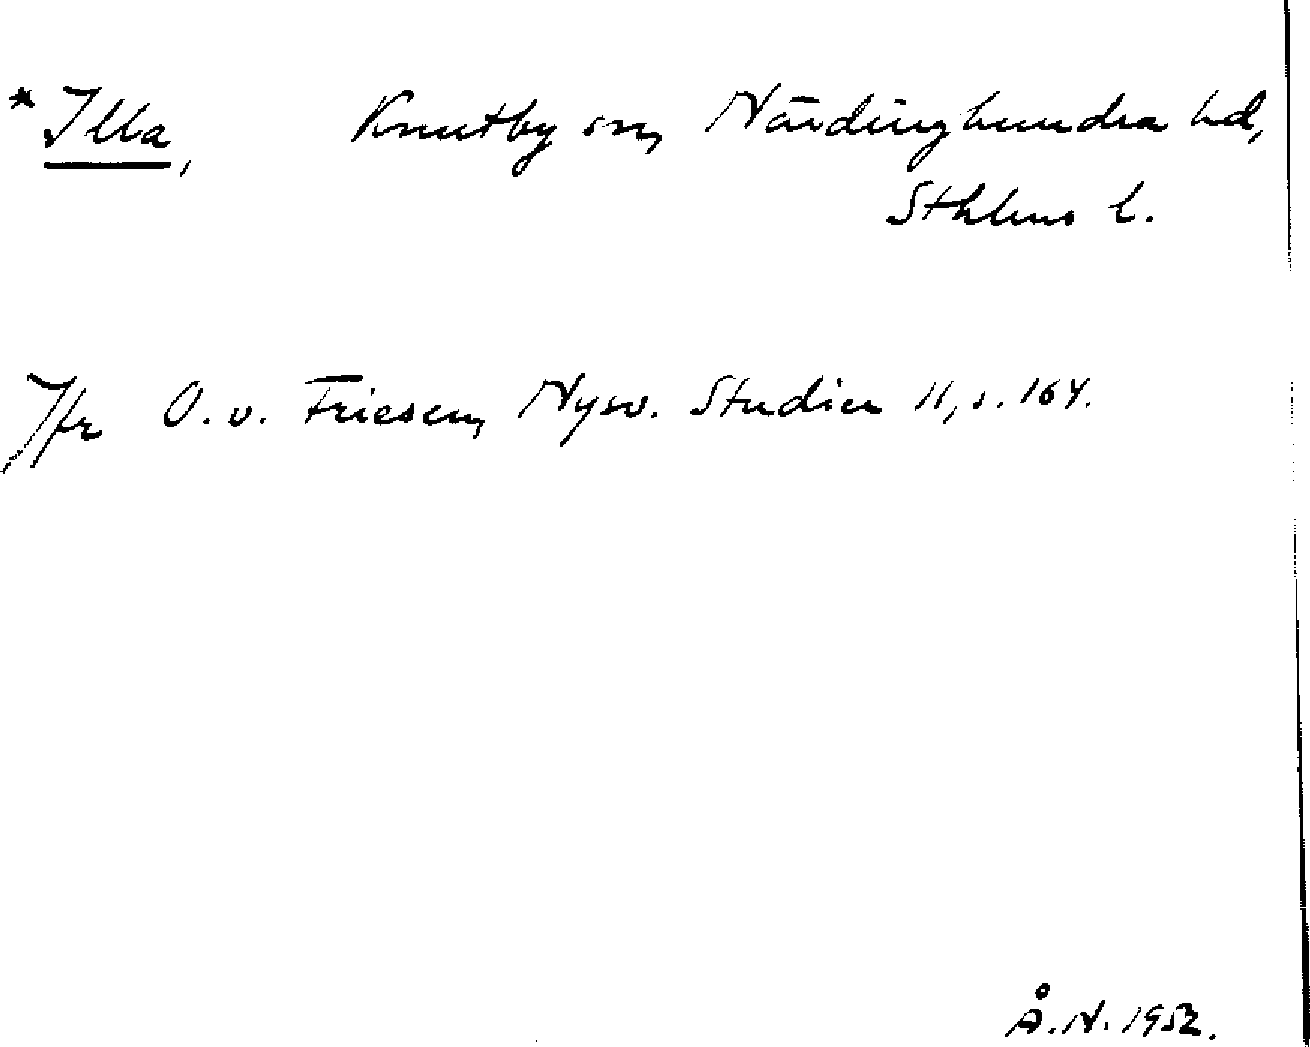 *Illa, Knutby sn, Närdinghundra hd,
Sthlms l.
Jfr O. v. Friesen, Nysv. Studier 11, s. 164.
Å. N. 1952.